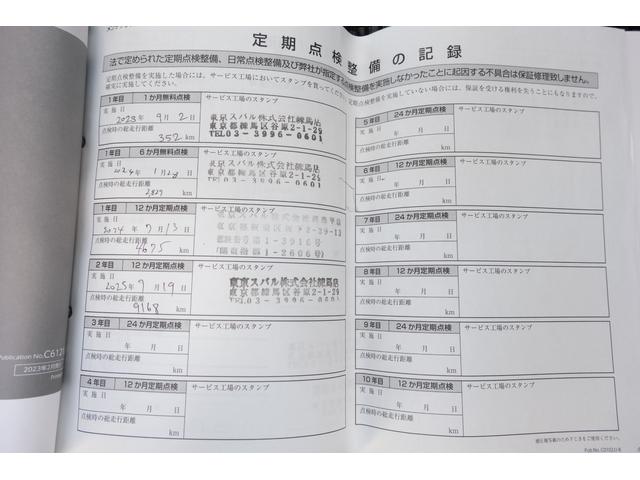 定期点検整備の記録
法で定められた定期点検整備、日常点検整備及び弊社が指定する点検整備を実施しなかったことに起因する不具合は保証修理致しません。
定期点検整備を実施した場合には、サービス工場においてスタンプを貰ってください。
確実に実施してください。
定期点検整備を実施していない場合には、保証を受ける権利を失うことにもなりますので、
1年目 1か月無料点検 サービス工場のスタンプ
実施日
2023年9月2日
点検時の総走行距離
352 km
東京スバル株式会社練馬店
東京都練馬区谷原2-1-29
TEL03-3996-0601
1年目 6か月無料点検 サービス工場のスタンプ
実施日
2024年1月28日
点検時の総走行距離
2,827 km
東京スバル株式会社練馬店
東京都練馬区谷原2-1-29
TEL03-3996-0601
1年目 12か月定期点検 サービス工場のスタンプ
実施日
2024年7月13日
点検時の総走行距離
4675 km
東京スバル株式会社
2年目 12か月定期点検 サービス工場のスタンプ
実施日
2025年7月19日
点検時の総走行距離
9168 km
東京スバル株式会社練馬店
東京都練馬区谷原2-1-29
TEL03-3996-0601
3年目 24か月定期点検 サービス工場のスタンプ
実施日
年 月 日
点検時の総走行距離
km
4年目 12か月定期点検 サービス工場のスタンプ
実施日
年 月 日
点検時の総走行距離
km
5年目 24か月定期点検 サービス工場のスタンプ
実施日
年 月 日
点検時の総走行距離
km
6年目 12か月定期点検 サービス工場のスタンプ
実施日
年 月 日
点検時の総走行距離
km
7年目 24か月定期点検 サービス工場のスタンプ
実施日
年 月 日
点検時の総走行距離
km
8年目 12か月定期点検 サービス工場のスタンプ
実施日
年 月 日
点検時の総走行距離
km
9年目 24か月定期点検 サービス工場のスタンプ
実施日
年 月 日
点検時の総走行距離
km
10年目 12か月定期点検 サービス工場のスタンプ
実施日
年 月 日
点検時の総走行距離
km
Publication No.C612
2023年2月